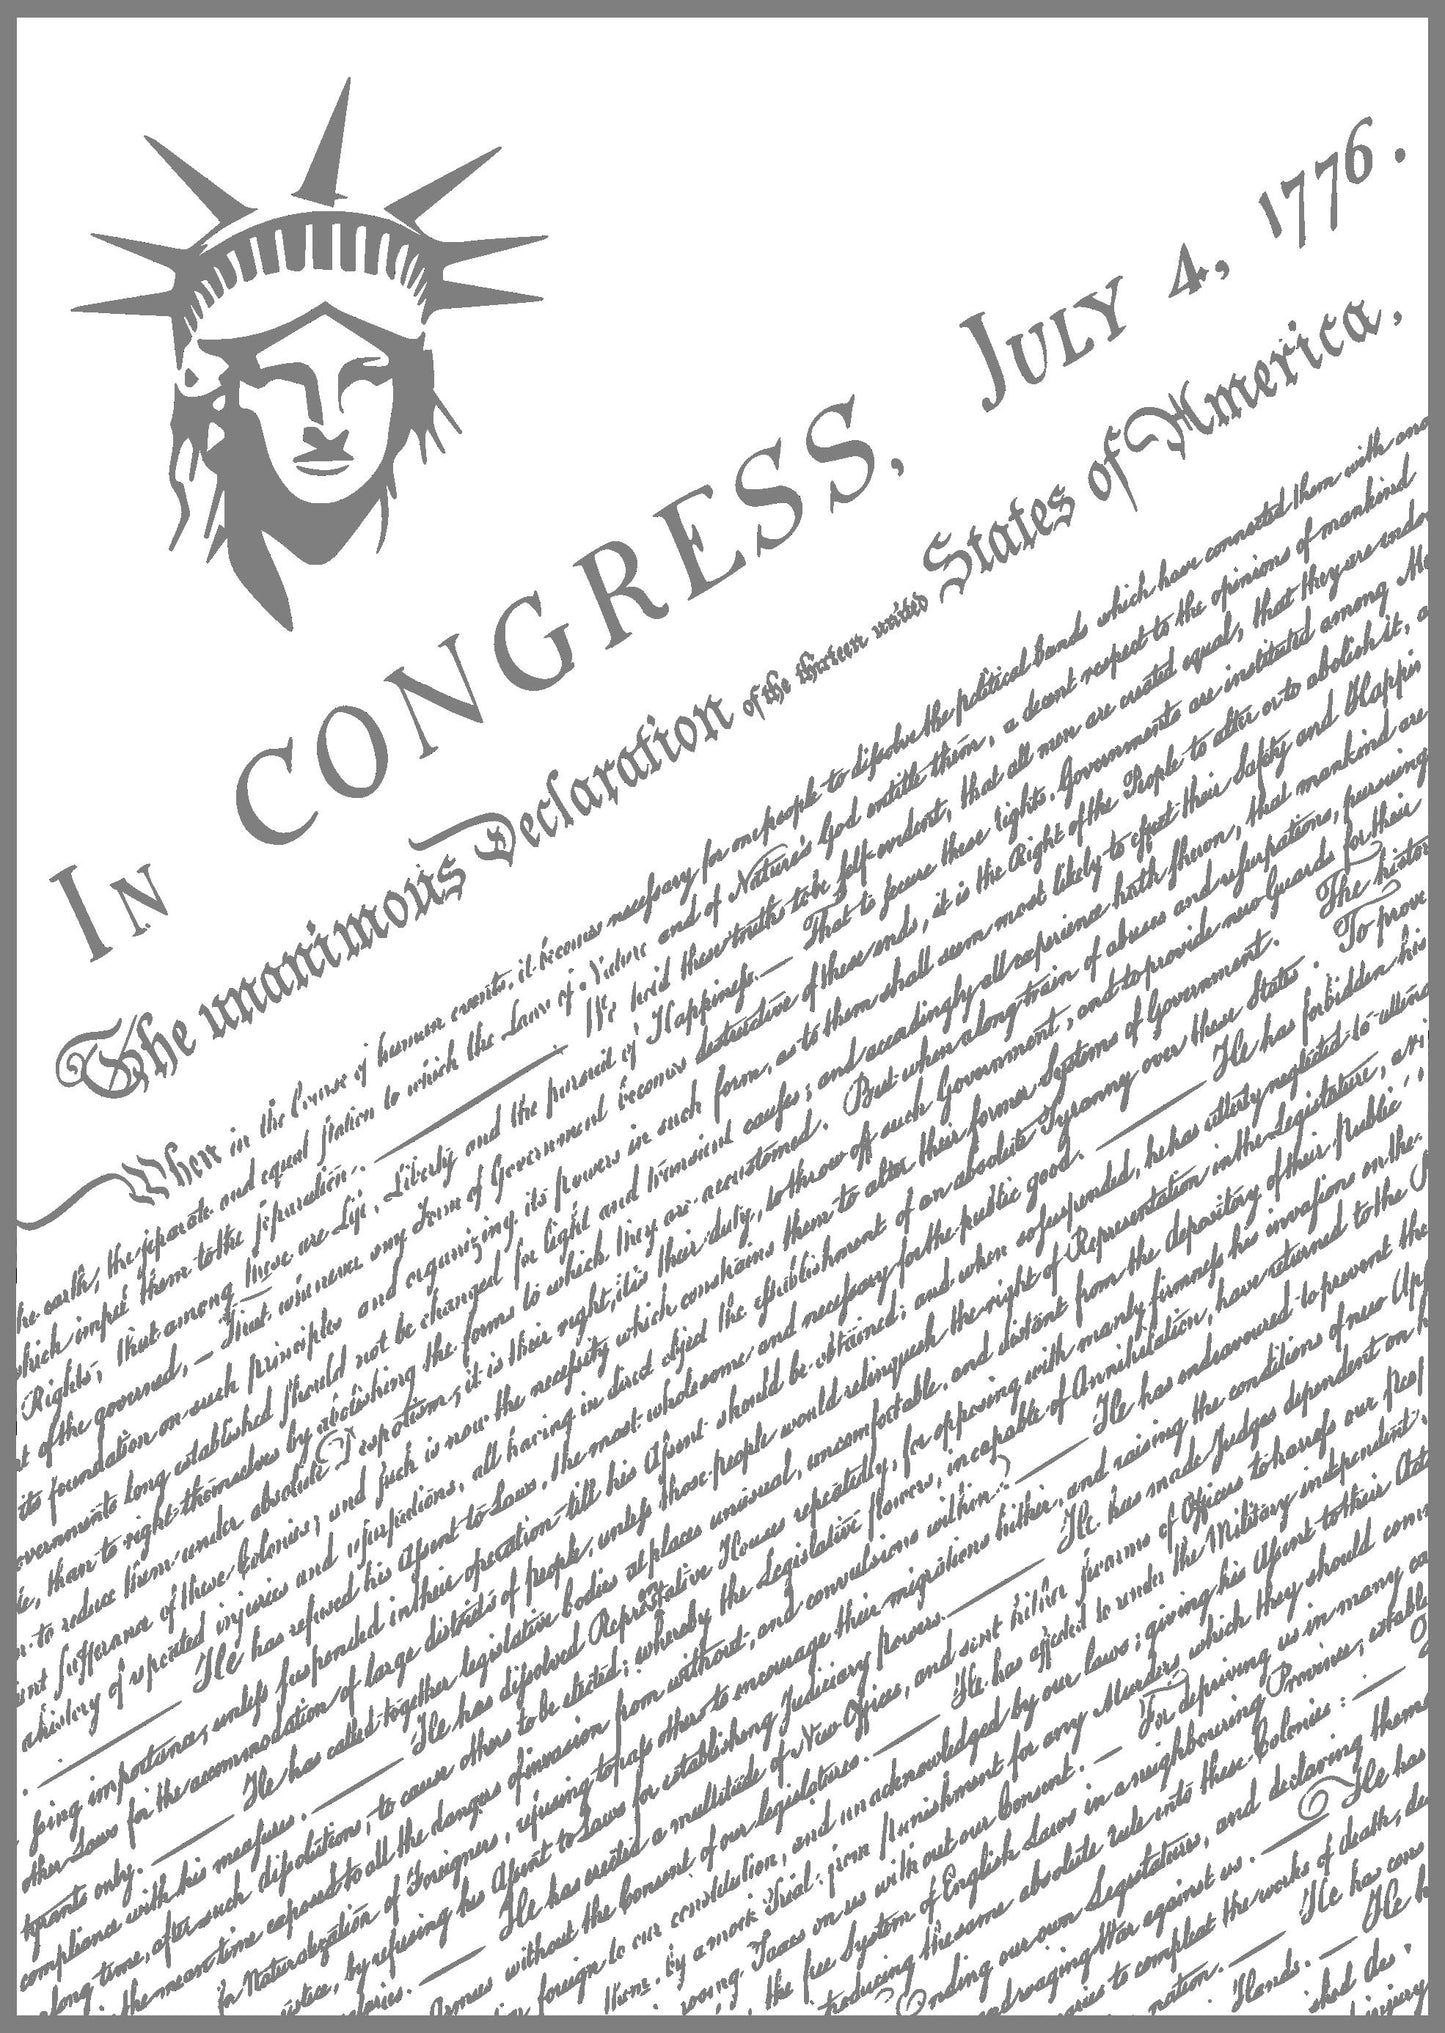 IN CONGRESS, JULY 4, 1776.
The unanimous Declaration of the thirteen united States of America,
When in the Course of human events, it becomes necessary for one people to dissolve the political bands which have connected them with ano
he earth, the separate and equal station to which the Laws of Nature and of Nature's God entitle them, a decent respect to the opinions of mankind
which impel them to the separation. We hold these truths to be self-evident, that all men are created equal, that they are endo
Rights, that among these are Life, Liberty and the pursuit of Happiness.— That to secure these rights, Governments are instituted among Me
of the governed,— That whenever any Form of Government becomes destructive of these ends, it is the Right of the People to alter or to abolish it, a
its foundation on such principles and organizing its powers in such form, as to them shall seem most likely to effect their Safety and Happin
overnments long established should not be changed for light and transient causes; and accordingly all experience hath shewn, that mankind are
than to right themselves by abolishing the forms to which they are accustomed. But when a long train of abuses and usurpations, pursuing
to reduce them under absolute Despotism, it is their right, it is their duty, to throw off such Government, and to provide new Guards for their
ent sufferance of these Colonies; and such is now the necessity which constrains them to alter their former Systems of Government. The histor
a history of repeated injuries and usurpations, all having in direct object the establishment of an absolute Tyranny over these States. To prove
He has refused his Assent to Laws, the most wholesome and necessary for the public good. He has forbidden his
sing importance, unless suspended in their operation till his Assent should be obtained; and when so suspended, he has utterly neglected to attend
other Laws for the accommodation of large districts of people, unless those people would relinquish the right of Representation in the Legislature, a ri
tyrants only. He has called together legislative bodies at places unusual, uncomfortable, and distant from the depository of their Public
compliance with his measures. He has dissolved Representative Houses repeatedly, for opposing with manly firmness his invasions on the
long time, after such dissolutions, to cause others to be elected; whereby the Legislative powers, incapable of Annihilation, have returned to the
the mean time exposed to all the dangers of invasion from without, and convulsions within. He has endeavoured to prevent the
Naturalization of Foreigners, refusing to pass others to encourage their migrations hither, and raising the conditions of new App
by refusing his Assent to Laws for establishing Judiciary powers. He has made Judges dependent on h
He has erected a multitude of New Offices, and sent hither swarms of Officers to harrass our peop
Armies without the Consent of our legislatures. He has affected to render the Military independent
foreign to our constitution, and unacknowledged by our laws; giving his Assent to their Acts
them, by a mock Trial, from punishment for any Murders which they should com
posing Taxes on us without our Consent. For depriving us in many ca
the free System of English Laws in a neighbouring Province, establ
troducing the same absolute rule into these Colonies:
ending our own Legislatures, and declaring them
and waging War against us. He has
aries to compleat the works of death, de
nation. He has cons
Hands. He h